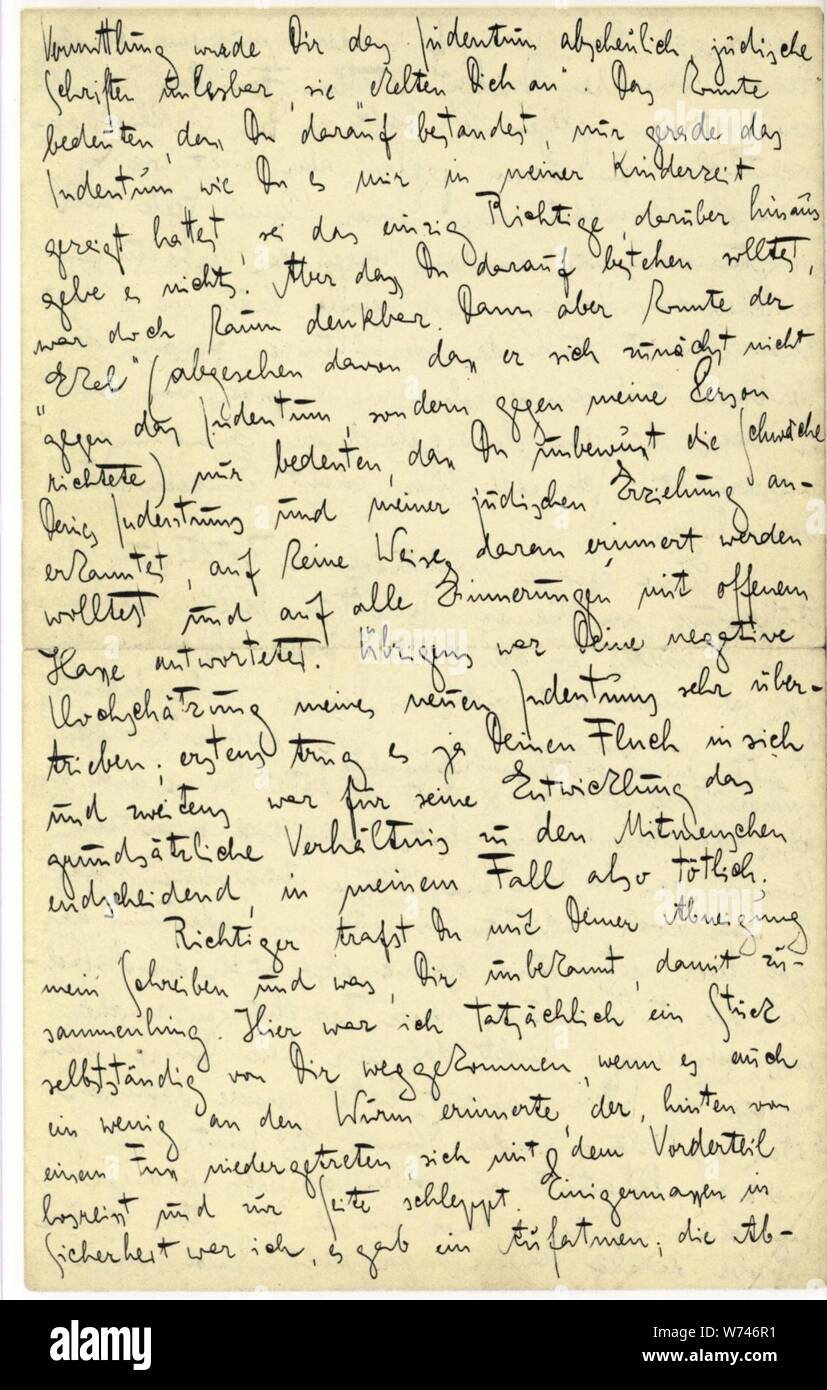 Vermittlung wurde Dir das Judentum abscheulich, jüdische
Schriften unlesbar, sie „ekelten Dich an". Das konnte
bedeuten, dass Du darauf bestandest, nur gerade das
Judentum wie Du es mir in meiner Kinderzeit
gezeigt hattest, sei das einzig Richtige, darüber hinaus
gebe es nichts. Aber dass Du darauf bestehen solltest,
war doch kaum denkbar. Dann aber konnte der
„Ekel" (abgesehen davon dass er sich zunächst nicht
gegen das Judentum, sondern gegen meine Person
richtete) nur bedeuten, dass Du unbewusst die Schwäche
Deines Judentums und meiner jüdischen Erziehung an-
erkanntest, auf keine Weise daran erinnert werden
wolltest und auf alle Erinnerungen mit offenem
Hasse antwortetest. Übrigens war Deine negative
Hochschätzung meines neuen Judentums sehr über-
trieben; erstens trug es ja Deinen Fluch in sich
und zweitens war für seine Entwicklung das
grundsätzliche Verhältnis zu den Mitmenschen
endscheidend, in meinem Fall also tötlich.
Richtiger trafst Du mit Deiner Abneigung
mein Schreiben und was, Dir unbekannt, damit zu-
sammenhing. Hier war ich tatsächlich ein Stück
selbstständig von Dir weggekommen, wenn es auch
ein wenig an den Wurm erinnerte, der, hinten von
einem Fuss niedergetreten, sich mit dem Vorderteil
losreisst und zur Seite schleppt. Einigermassen in
Sicherheit war ich, es gab ein Aufatmen; die Ab-
alamy
Image ID: W746R1
www.alamy.com